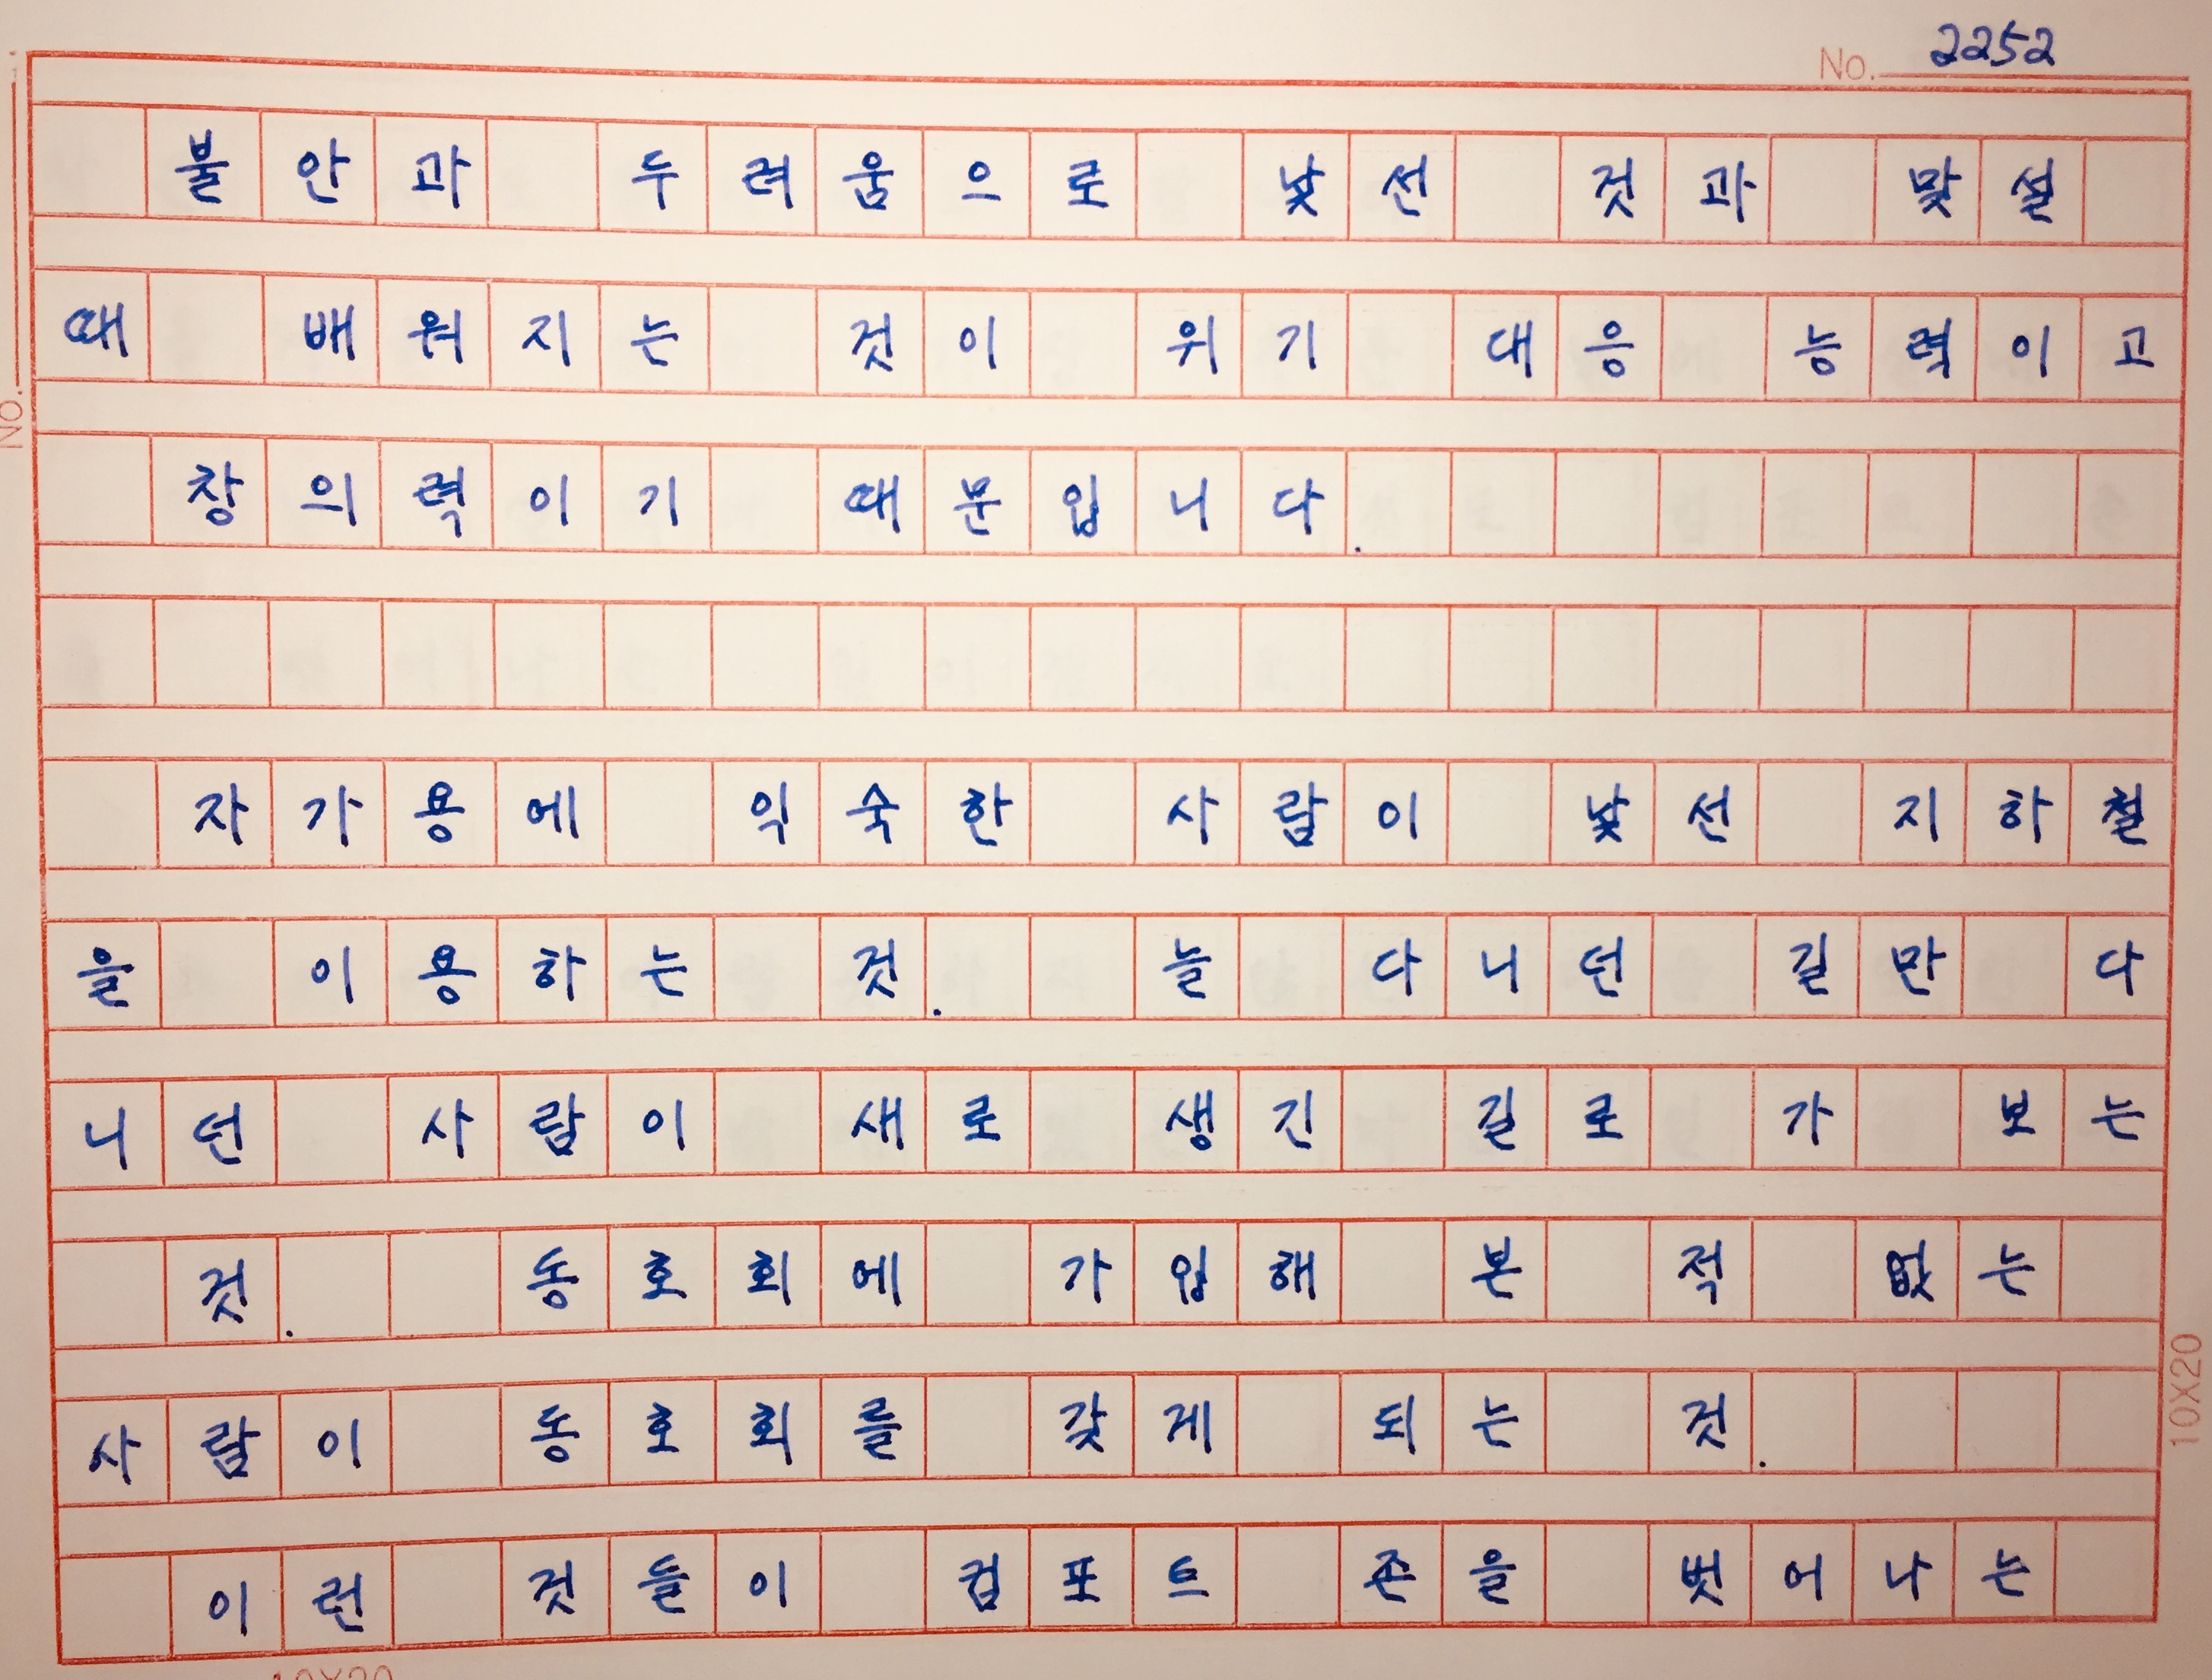 No. 2252
불안과 두려움으로 낯선 것과 맞설
때 배워지는 것이 위기 대응 능력이고
창의력이기 때문입니다.
자가용에 익숙한 사람이 낯선 지하철
을 이용하는 것. 늘 다니던 길만 다
니던 사람이 새로 생긴 길로 가 보는
것. 동호회에 가입해 본 적 없는
사람이 동호회를 갖게 되는 것.
이런 것들이 컴포트 존을 벗어나는
No.
10X20
10X20